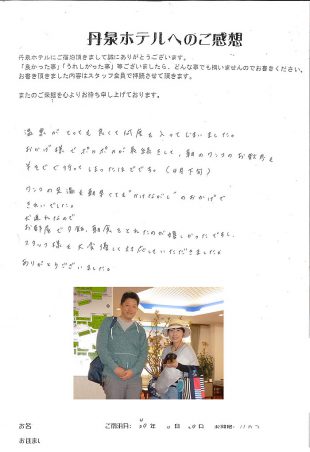 丹泉ホテルへのご感想
丹泉ホテルにご宿泊頂きまして誠にありがとうございます。
「良かった事」「うれしかった事」等ございましたら、どんな事でも構いませんのでお書きください。
お書き頂きました内容はスタッフ全員で拝読させて頂きます。
またのご来館を心よりお待ち申し上げております。
温泉がとっても良くて何度も入ってしまいました。
おかげ様で ポカポカが 持続をして、朝のワンコのお散歩も
半そでで行ってしまったほどです。
ワンコの足湯も朝早くても"かけながし"のおかげで
きれいでした。
犬連れなので
お部屋で夕朝、朝食をとれたのが嬉しかったですし、
スタッフ様も 対応していただきました。
ありがとうございました。
お名
ご宿泊日: 年 月 日
お住まい